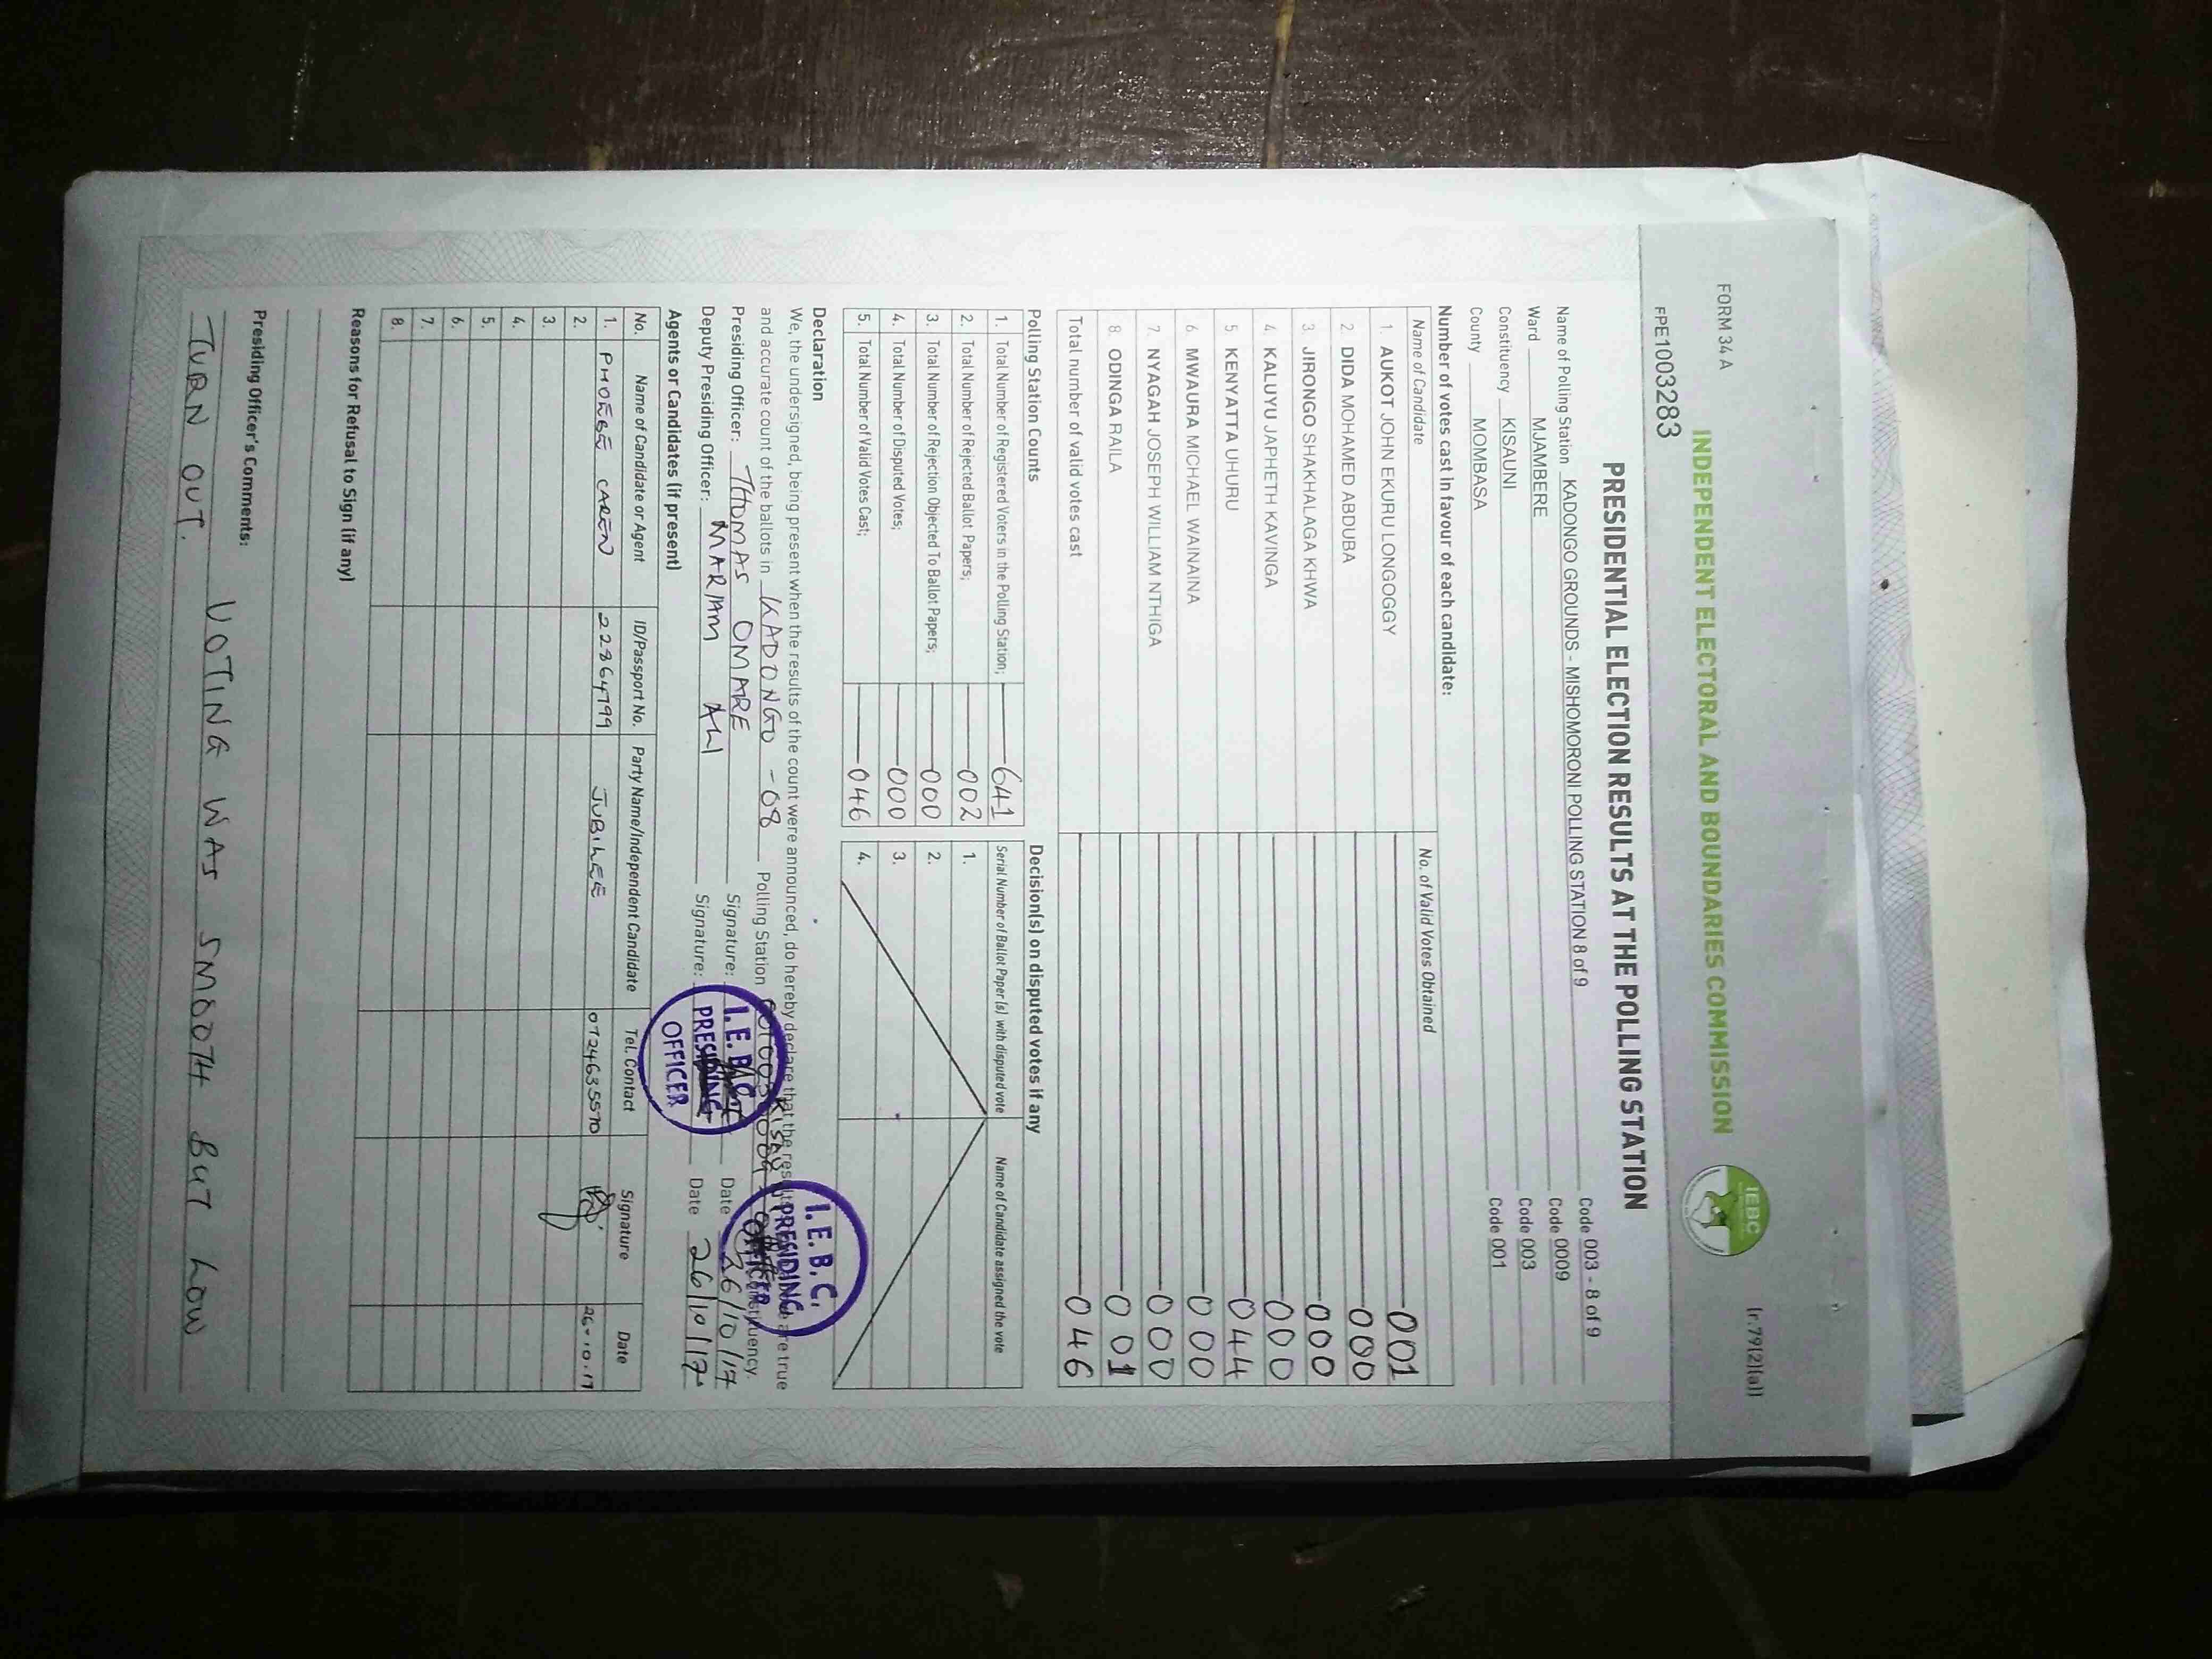 FORM 34 A
(r.79(2)(a))
INDEPENDENT ELECTORAL AND BOUNDARIES COMMISSION
IEBC
FPE1003283
PRESIDENTIAL ELECTION RESULTS AT THE POLLING STATION
Name of Polling Station KADONGO GROUNDS - MISHOMORONI POLLING STATION 8 of 9 Code 003 - 8 of 9
Ward MJAMBERE Code 0009
Constituency KISAUNI Code 003
County MOMBASA Code 001
Number of votes cast in favour of each candidate:
Name of Candidate No. of Valid Votes Obtained
1. AUKOT JOHN EKURU LONGOGGY 001
2 DIDA MOHAMED ABDUBA 000
3 JIRONGO SHAKHALAGA KHWA 000
4 KALUYU JAPHETH KAVINGA 000
5 KENYATTA UHURU 044
6 MWAURA MICHAEL WAINAINA 000
7 NYAGAH JOSEPH WILLIAM NTHIGA 000
8. ODINGA RAILA 001
Total number of valid votes cast 046
Polling Station Counts Decision(s) on disputed votes if any
1. Total Number of Registered Voters in the Polling Station; 641 Serial Number of Ballot Paper (s) with disputed vote Name of Candidate assigned the vote
2. Total Number of Rejected Ballot Papers; 002 1.
3. Total Number of Rejection Objected To Ballot Papers; 000 2.
4. Total Number of Disputed Votes; 000 3.
5. Total Number of Valid Votes Cast; 046 4.
Declaration
We, the undersigned, being present when the results of the count were announced, do hereby declare that the results are true
and accurate count of the ballots in KADONGO - 08 Polling Station Constituency.
Presiding Officer: THOMAS OMARE Signature: Date 26/10/17
Deputy Presiding Officer: MARIAM ALI Signature: Date 26/10/17
I.E.B.C. PRESIDING OFFICER
I.E.B.C. PRESIDING OFFICER
Agents or Candidates (if present)
No. Name of Candidate or Agent ID/Passport No. Party Name/Independent Candidate Tel. Contact Signature Date
1. PHOEBE CAREN 22864799 JUBILEE 0724635570 26.10.17
2.
3.
4.
5.
6.
7.
8.
Reasons for Refusal to Sign (if any)
Presiding Officer's Comments:
VOTING WAS SMOOTH BUT LOW
TURN OUT.